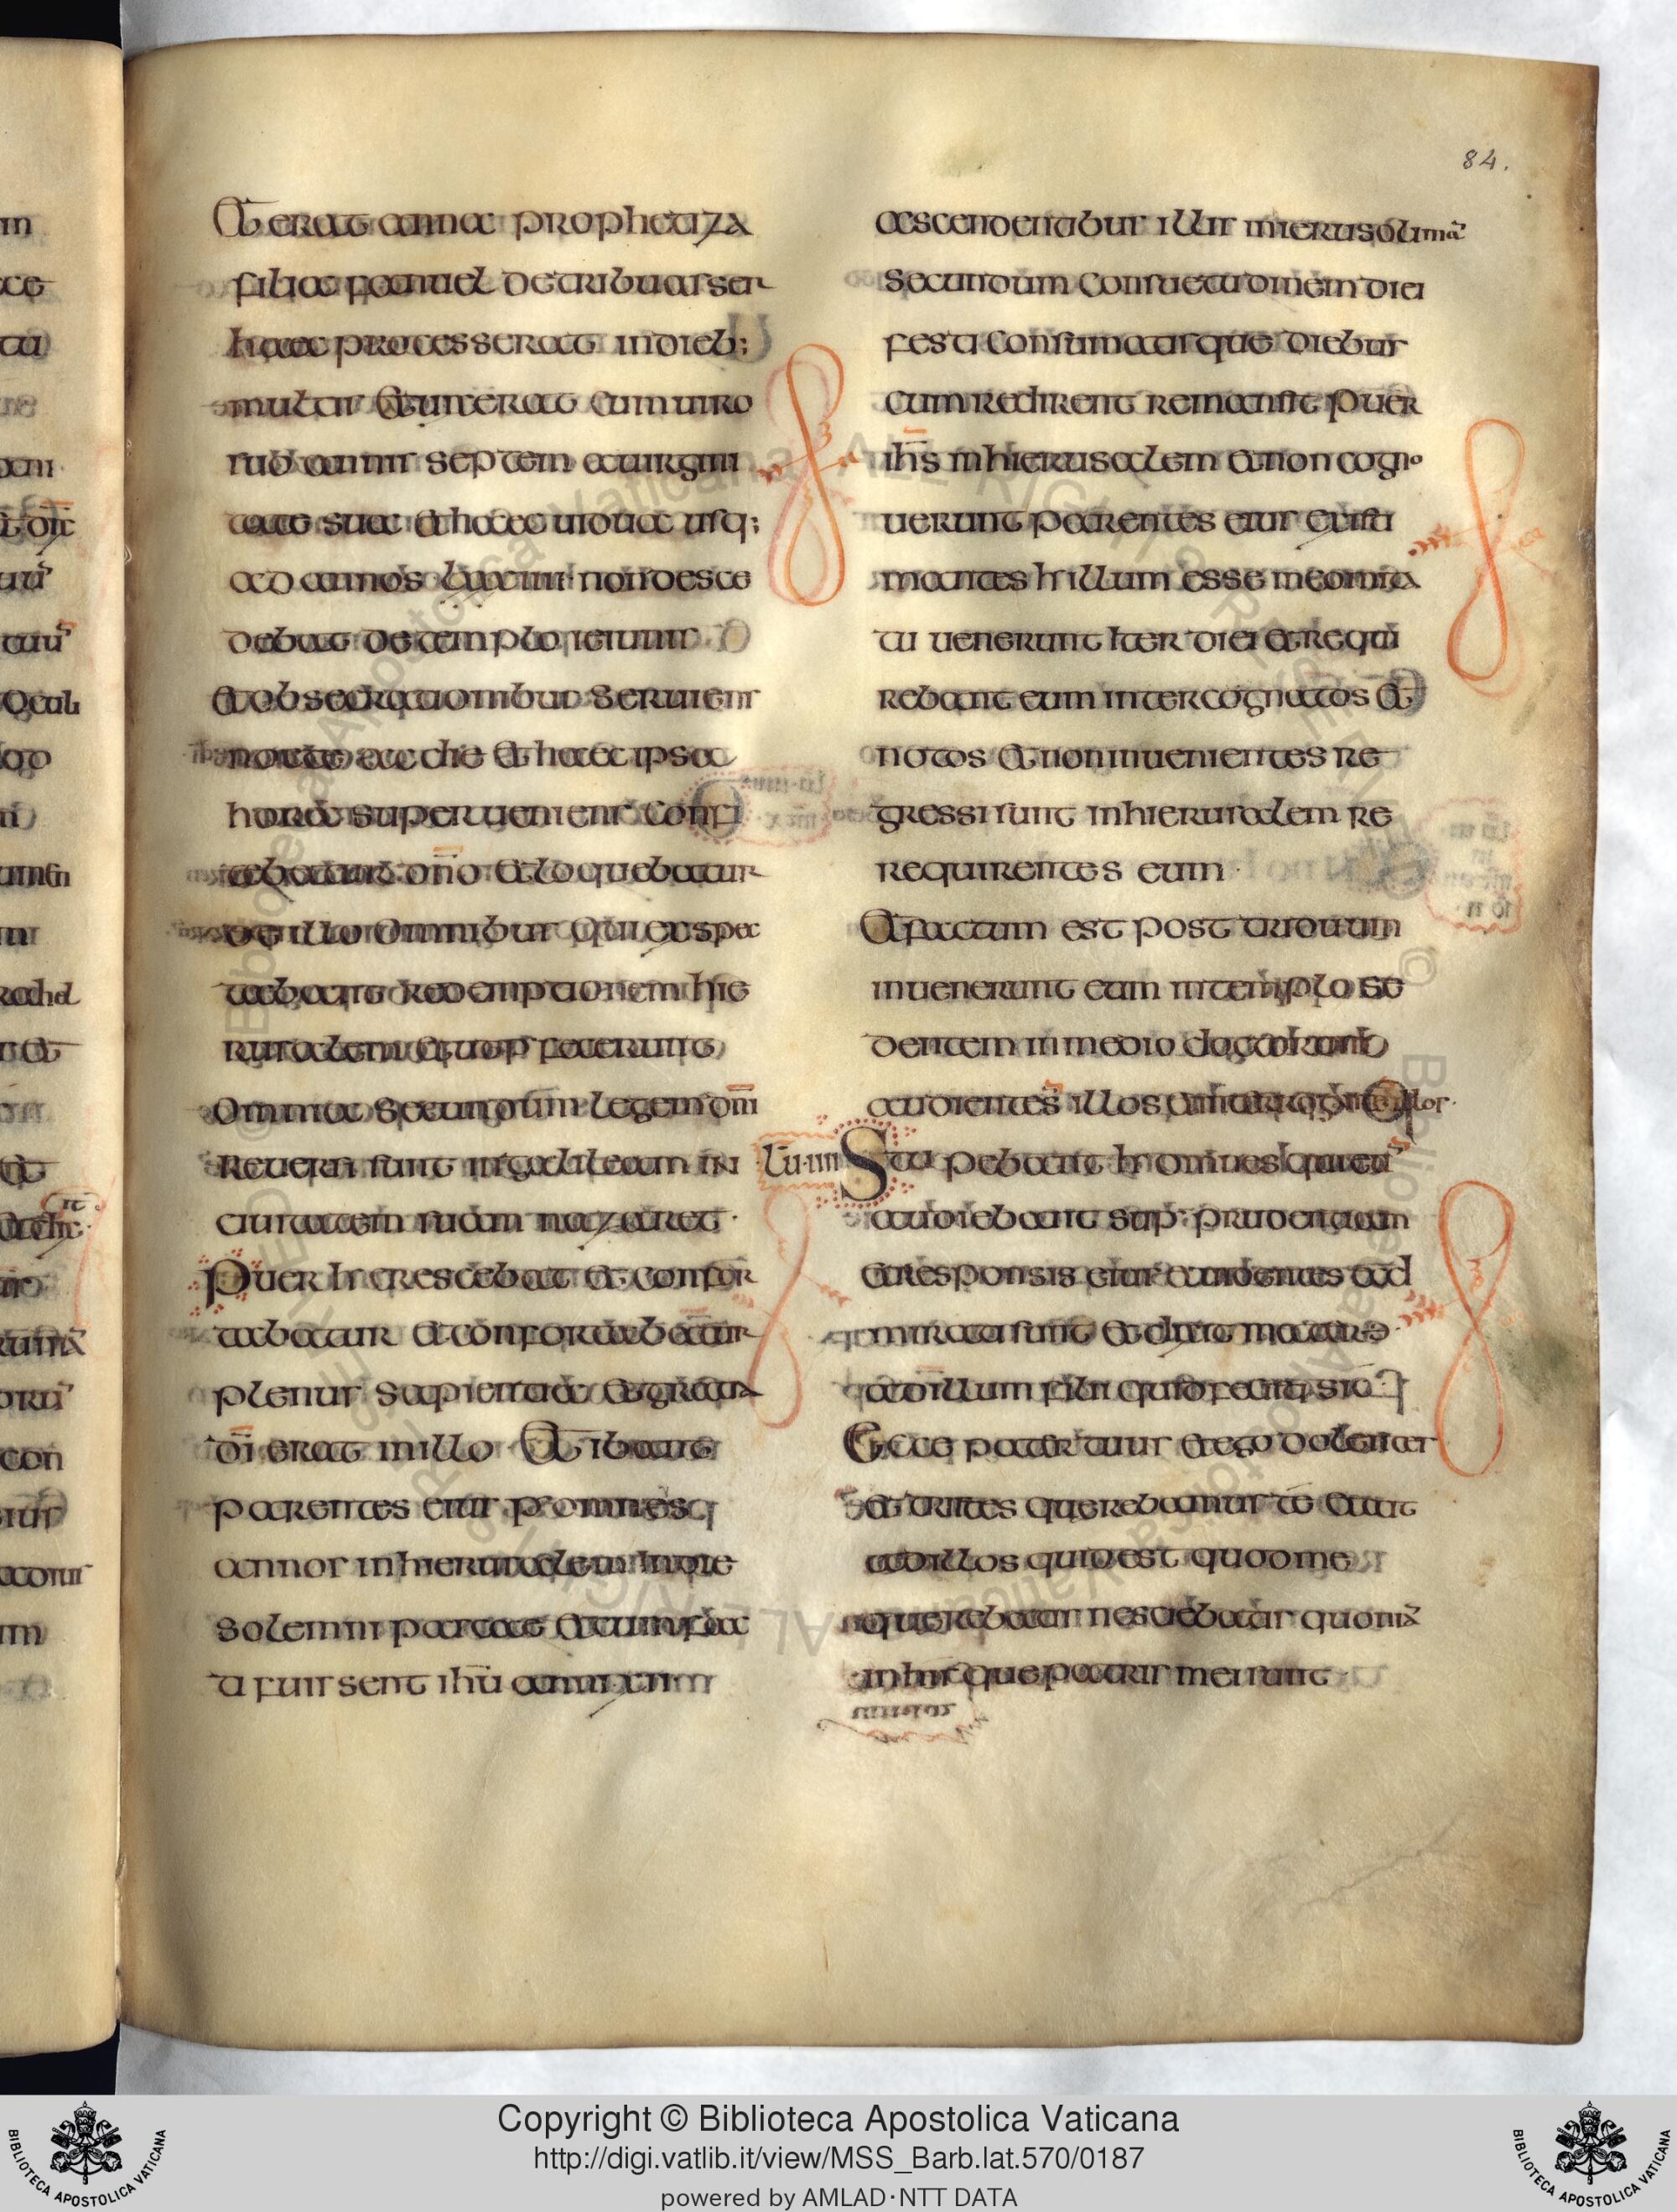 84.
Et erat anna prophetiza
filia fanuel de tribu asser
haec processerat in dieb;
multis et uixerat cum uiro
suo annis septem a uirgini
tate sua et haec uidua usq;
ad annos lxxxiiii non desce
debat de templo ieiuniis
et obsecrationibus seruiens
nocte ac die et haec ipsa
hora superueniens confi
tebatur dn̄o et loquebatur
de illo omnibus qui exspec
tabant redemptionem hie
rusalem et
omnia secundum legem dn̄i
reuersi sunt in galileam in
ciuitatem suam nazaret ·
Puer h crescebat et confor
tabatur et confortabatur
plenus sapientia et gratia
dī erat in illo Et ibant
parentes eius p omnes
annos in hierusalem in die
solemni pascae et cum fac
ti fuissent ihū anni xii
ascendentibus illis in ierusolima
secundum consuetudinem diei
festi consumatisque diebus
cum redirent remansit puer
ihs̄ in hierusalem et non cogno
uerunt parentes eius existi
mantes h illum esse in comita
tu uenerunt iter diei et requi
rebant eum inter cognatos et
notos et non inuenientes re
gressi sunt in hierusalem re
requirentes eum
Et factum est post triduum
inuenerunt eum in templo se
dentem in medio
audientes illos illos·
lu·iiii Stupebant h omnes qui eū
audiebant sup prudentiam
et responsis eius et uidentes ad
mirati sunt et dixit mater
ad illum fili quid fecisti sic
Ecce pater tuus et ego dolentes
et tristes querebamus te et ait
ad illos quid est quod me
querebatis nesciebatis quonia
in his que patris mei sunt
Copyright © Biblioteca Apostolica Vaticana
http://digi.vatlib.it/view/MSS_Barb.lat.570/0187
powered by AMLAD·NTT DATA
BIBLIOTECA APOSTOLICA VATICANA
BIBLIOTECA APOSTOLICA VATICANA